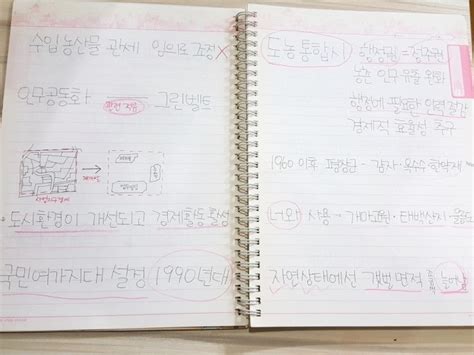 수입 농산물 관세 임의로 조정 X
인구공동화 그린벨트
도시환경이 개선되고 경제활동 활성
국민여가지대 설정 1990년대
도농통합시 행정권 = 정주권
농촌 인구 유출 완화
행정에 필요한 인력 절감
경제적 효율성 추구
1960 이후 평창군 - 감자·옥수수·한약재
너와 사용 - 개마고원·태백산지·울릉도
자연상태에선 갯벌 면적 늘어남